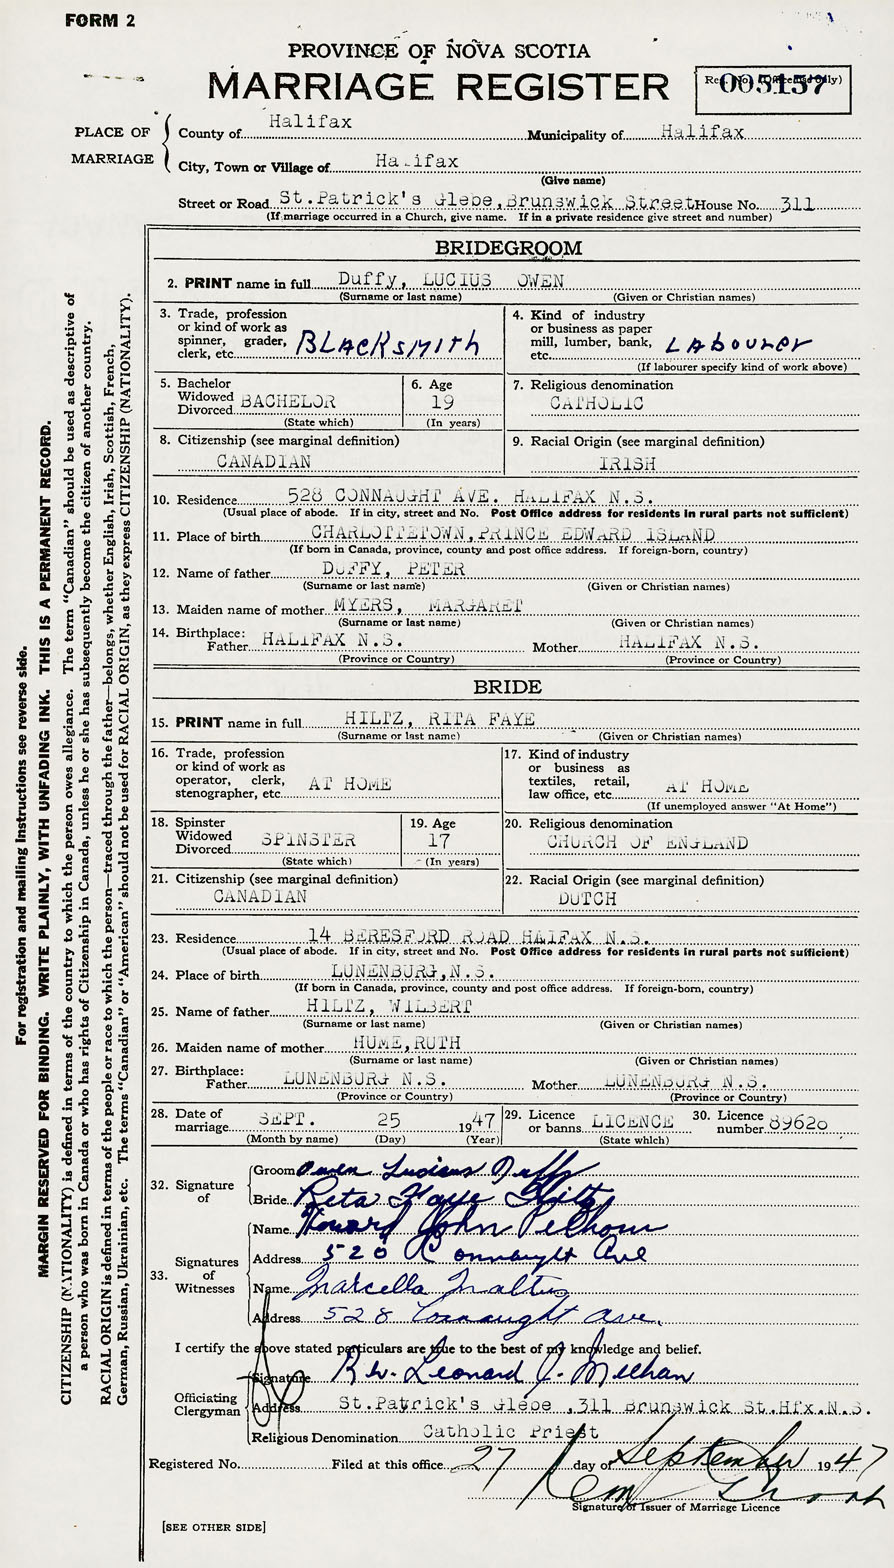 FORM 2
PROVINCE OF NOVA SCOTIA
MARRIAGE REGISTER
Reg. No. (Office use only)
005157
PLACE OF MARRIAGE
County of Halifax Municipality of Halifax
City, Town or Village of Halifax
(Give name)
Street or Road St.Patrick's Glebe,Brunswick Street House No. 311
(If marriage occurred in a Church, give name. If in a private residence give street and number)
BRIDEGROOM
2. PRINT name in full Duffy, LUCIUS OWEN
(Surname or last name) (Given or Christian names)
3. Trade, profession or kind of work as spinner, grader, clerk, etc. BLACKSMITH
4. Kind of industry or business as paper mill, lumber, bank, etc. LAbourer
(If labourer specify kind of work above)
5. Bachelor Widowed Divorced BACHELOR
(State which)
6. Age 19
(In years)
7. Religious denomination
CATHOLIC
8. Citizenship (see marginal definition)
CANADIAN
9. Racial Origin (see marginal definition)
IRISH
10. Residence 528 CONNAUGHT AVE. HALIFAX N.S.
(Usual place of abode. If in city, street and No. Post Office address for residents in rural parts not sufficient)
11. Place of birth CHARLOTTETOWN,PRINCE EDWARD ISLAND
(If born in Canada, province, county and post office address. If foreign-born, country)
12. Name of father DUFFY, PETER
(Surname or last name) (Given or Christian names)
13. Maiden name of mother MYERS, MARGARET
(Surname or last name) (Given or Christian names)
14. Birthplace:
Father HALIFAX N.S. Mother HALIFAX N.S.
(Province or Country) (Province or Country)
BRIDE
15. PRINT name in full HILTZ, RITA FAYE
(Surname or last name) (Given or Christian names)
16. Trade, profession or kind of work as operator, clerk, stenographer, etc. AT HOME
17. Kind of industry or business as textiles, retail, law office, etc. AT HOME
(If unemployed answer "At Home")
18. Spinster Widowed Divorced SPINSTER
(State which)
19. Age 17
(In years)
20. Religious denomination
CHURCH OF ENGLAND
21. Citizenship (see marginal definition)
CANADIAN
22. Racial Origin (see marginal definition)
DUTCH
23. Residence 14 BERESFORD ROAD HALIFAX N.S.
(Usual place of abode. If in city, street and No. Post Office address for residents in rural parts not sufficient)
24. Place of birth LUNENBURG,N.S.
(If born in Canada, province, county and post office address. If foreign-born, country)
25. Name of father HILTZ, WILBERT
(Surname or last name) (Given or Christian names)
26. Maiden name of mother HUME,RUTH
(Surname or last name) (Given or Christian names)
27. Birthplace:
Father LUNENBURG N.S. Mother LUNENBURG N.S.
(Province or Country) (Province or Country)
28. Date of marriage SEPT. 25 1947
(Month by name) (Day) (Year)
29. Licence or banns LICENCE
(State which)
30. Licence number 89620
32. Signature of
Groom Owen Lucious Duffy
Bride Reta Faye Hiltz
33. Signatures of Witnesses
Name Howard John Pelhour
Address 520 Connaught Ave
Name Marcella
Address 528 Connaught Ave.
I certify the above stated particulars are true to the best of my knowledge and belief.
Officiating Clergyman
Signature Rev. Leonard J. Meehan
Address St.Patrick's Glebe ,311 Brunswick St.Hfx.N.S.
Religious Denomination Catholic Priest
Registered No. Filed at this office 27 day of September 1947
Signature of Issuer of Marriage Licence
[SEE OTHER SIDE]
For registration and mailing instructions see reverse side.
MARGIN RESERVED FOR BINDING. WRITE PLAINLY, WITH UNFADING INK. THIS IS A PERMANENT RECORD.
CITIZENSHIP (NATIONALITY) is defined in terms of the country to which the person owes allegiance. The term "Canadian" should be used as descriptive of
a person who was born in Canada or who has rights of Citizenship in Canada, unless he or she has subsequently become the citizen of another country.
RACIAL ORIGIN is defined in terms of the people or race to which the person—traced through the father—belongs, whether English, Irish, Scottish, French,
German, Russian, Ukrainian, etc. The terms "Canadian" or "American" should not be used for RACIAL ORIGIN, as they express CITIZENSHIP (NATIONALITY).